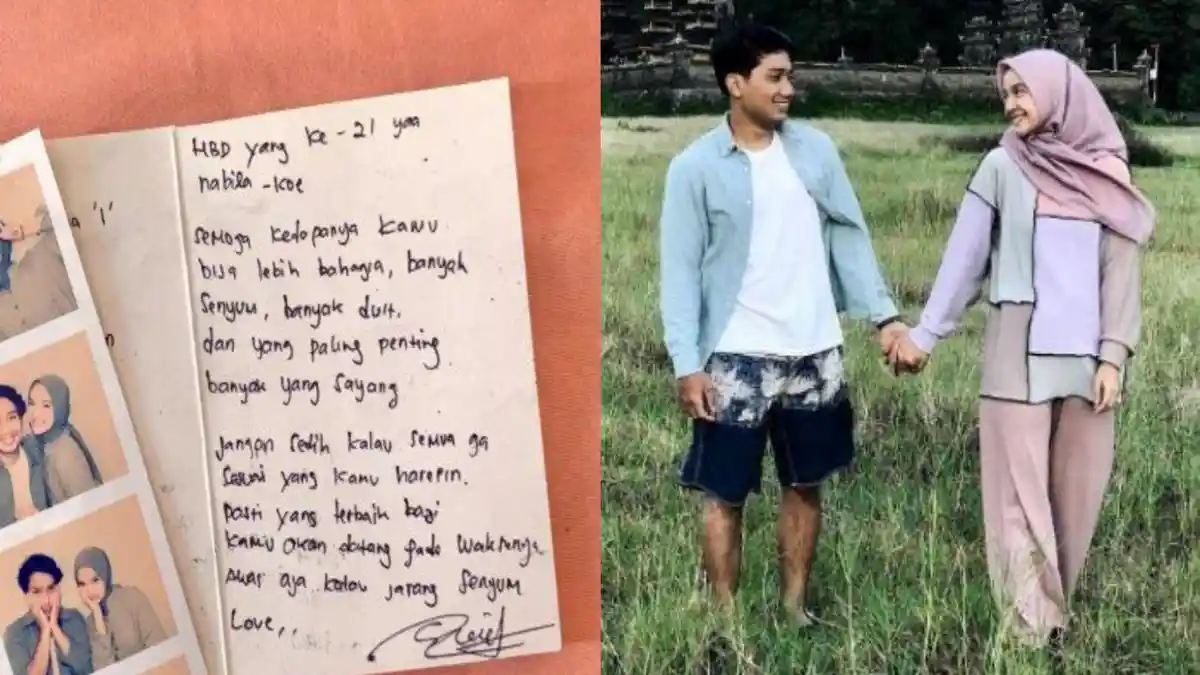 a 'i'
n
HBD yang ke -21 yaa
nabila -koe
semoga kedepanya kamu
bisa lebih bahagia, banyak
senyum, banyak duit.
dan yang paling penting
banyak yang sayang
jangan sedih kalau semua ga
sesuai yang kamu harepin.
pasti yang terbaik bagi
kamu akan datang pada waktunya
aja kalau jarang senyum
Love,.